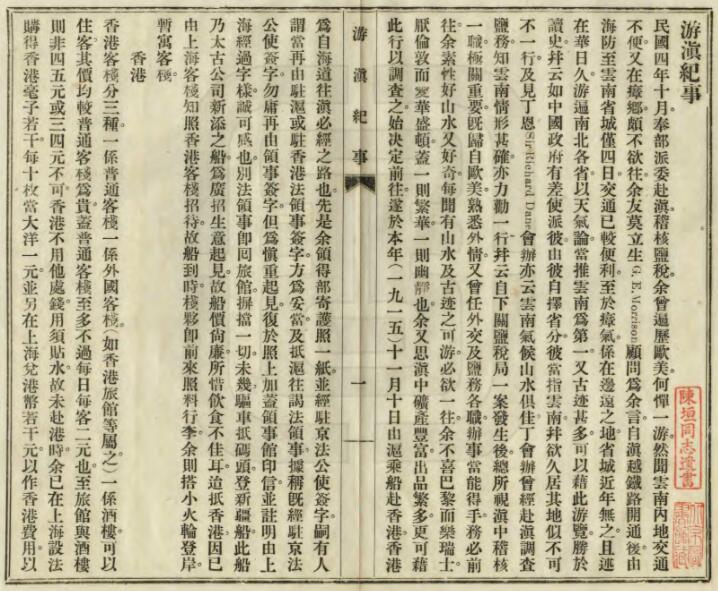 游滇紀事
民國四年十月。奉部派委赴滇稽核鹽稅。余曾遍歷歐美。何憚一游。然聞雲南內地交通
不便。又在瘴鄉。頗不欲往。余友莫立生 G. E. Morrison 顧問爲余言。自滇越鐵路開通後。由
海防至雲南省城僅四日。交通已較便利。至於瘴氣。係在邊遠之地。省城近年無之。且述
在華日久。游遍南北各省。以天氣論。當推雲南爲第一。又古蹟甚多。可以藉此游覽。勝於
讀史。幷云如中國政府有差使派彼。由彼自擇省分。彼當指雲南。幷欲久居其地。似不可
不一行。及見丁恩 Sir Richard Dane 會辦。亦云雲南氣候山水俱佳。丁會辦曾經赴滇調查
鹽務。知雲南情形甚確。亦力勸一行。幷云自下關鹽稅局一案發生後。總所視滇中稽核
一職。極關重要。旣歸自歐美。熟悉外情。又曾任外交及鹽務各職。辦事當能得手。務必前
往。余素性好山水。又好奇。每聞有山水及古迹之可游。必欲一往。余不喜巴黎而樂瑞士。
厭倫敦而愛華盛頓。蓋一則繁華。一則幽靜也。余又思滇中礦產豐富。出品繁多。更可藉
此行以調查之。始決定前往。遂於本年(一九一五)十一月十日由滬乘船赴香港。香港
游滇紀事
一
爲自海道往滇必經之路也。先是余領得部寄護照一紙。並經駐京法公使簽字。嗣有人
謂當再由駐滬或駐香港法領事簽字方爲妥當。及抵滬往謁法領事。據稱旣經駐京法
公使簽字。勿庸再由領事簽字。但爲愼重起見。復於照上加蓋領事館印信。並註明由上
海經過字樣。誠可感也。別法領事卽囘旅館。摒擋一切。未幾驅車抵碼頭。登新疆船。此船
乃太古公司新添之船。爲廣招生意起見。故船價尙廉。所惜飲食不佳耳。迨抵香港。因已
由上海客棧知照香港客棧招待。故船到時。棧夥卽前來照料行李。余則搭小火輪登岸。
暫寓客棧。
香港
香港客棧分三種。一係普通客棧。一係外國客棧。(如香港旅館等屬之)一係酒樓。可以
住客。其價均較普通客棧爲貴。蓋普通客棧至多不過每日每客二元也。至旅館與酒樓
則非四五元或三四元不可。香港不用他處錢。用須貼水。故未赴港時。余已在上海設法
購得香港毫子若干。每十枚當大洋一元。並另在上海兌港幣若干元。以作香港費用。以
陳垣同志遺書